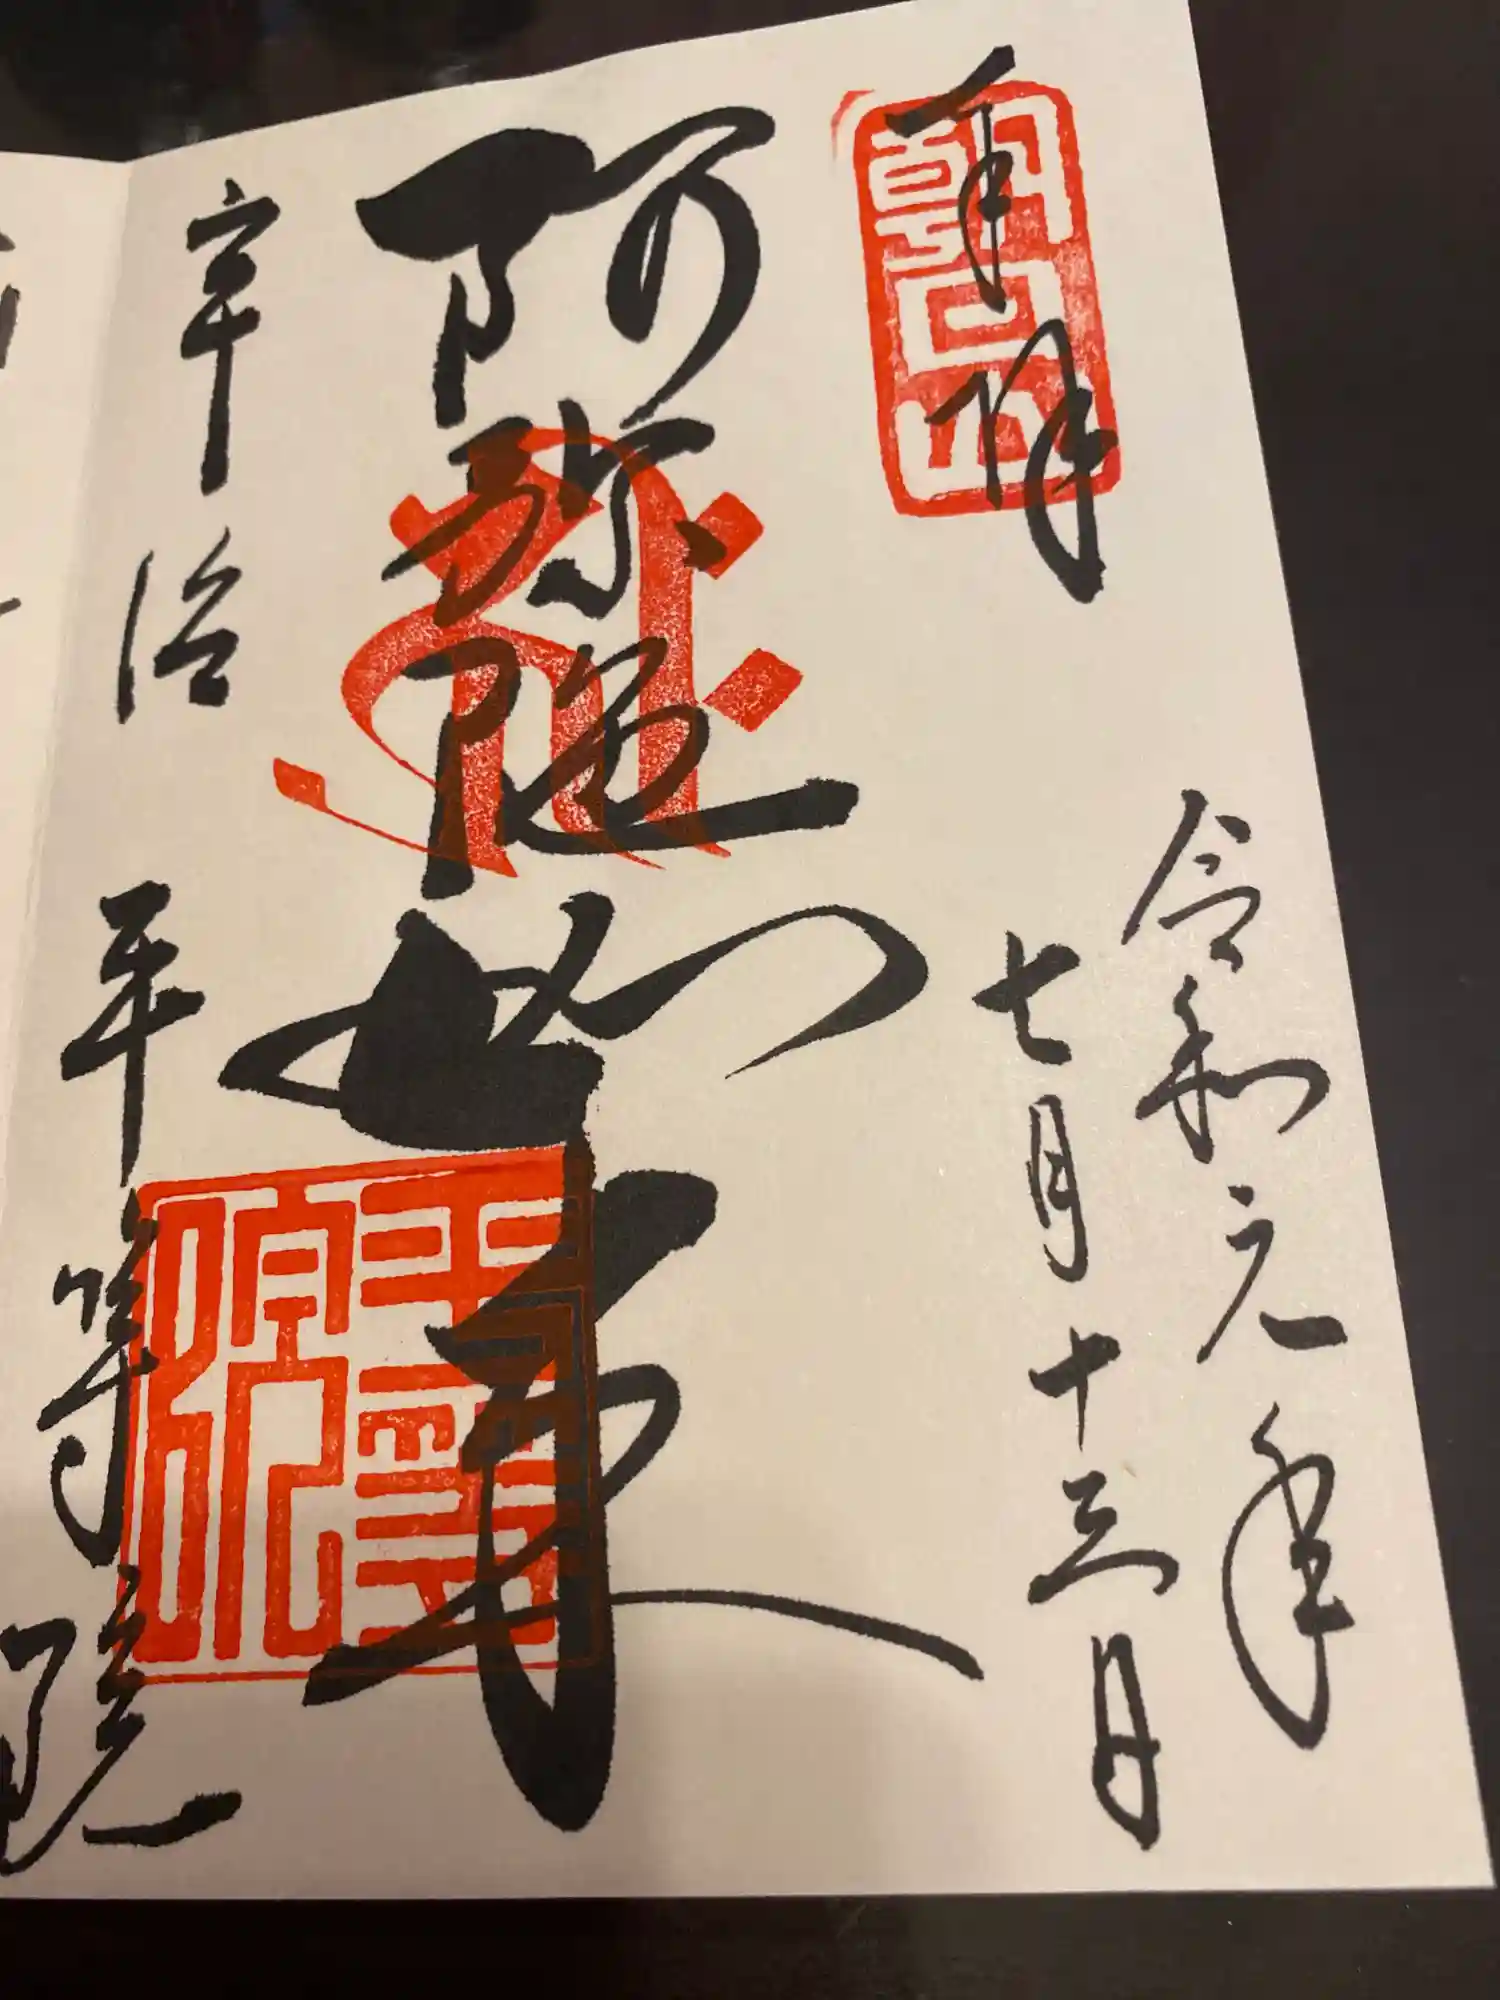 奉拝
朝日山
令和元年
七月十三日
阿弥陀如来
平等院
宇治 平等院